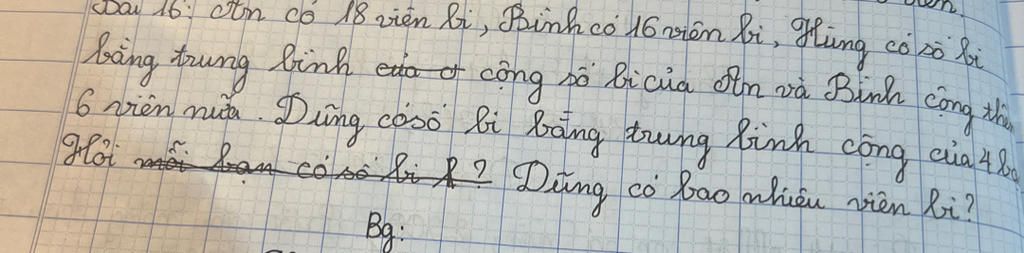 Bài 16: An có 18 viên bi, Bình có 16 viên bi, Hùng có số bi
bằng trung bình của cộng số bi của An và Bình cộng thêm
6 viên nữa. Dũng có số bi bằng trung bình cộng của 4 bạn
Hỏi mỗi bạn có số bi ? Dũng có bao nhiêu viên bi?
Bg: